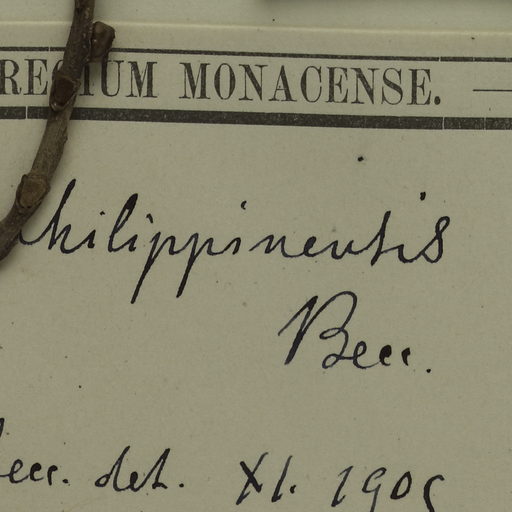 REGIUM MONACENSE.
philippinensis
Becc.
Becc. det. XI. 1905